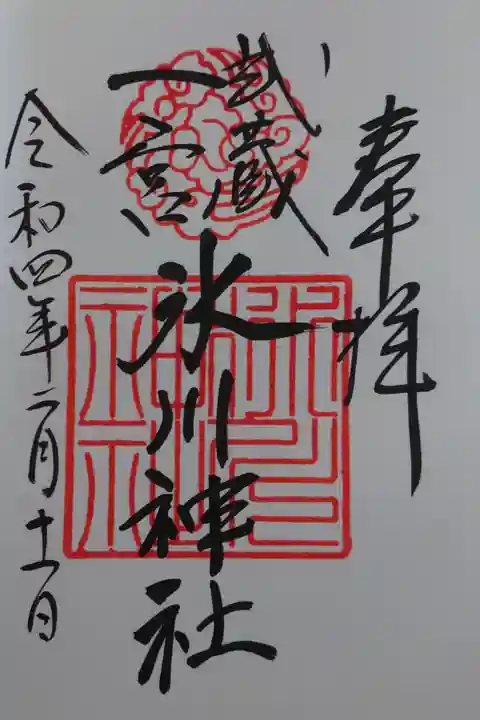 奉拝
武蔵
一宮
氷川神社
令和四年二月十一日
氷川
神社